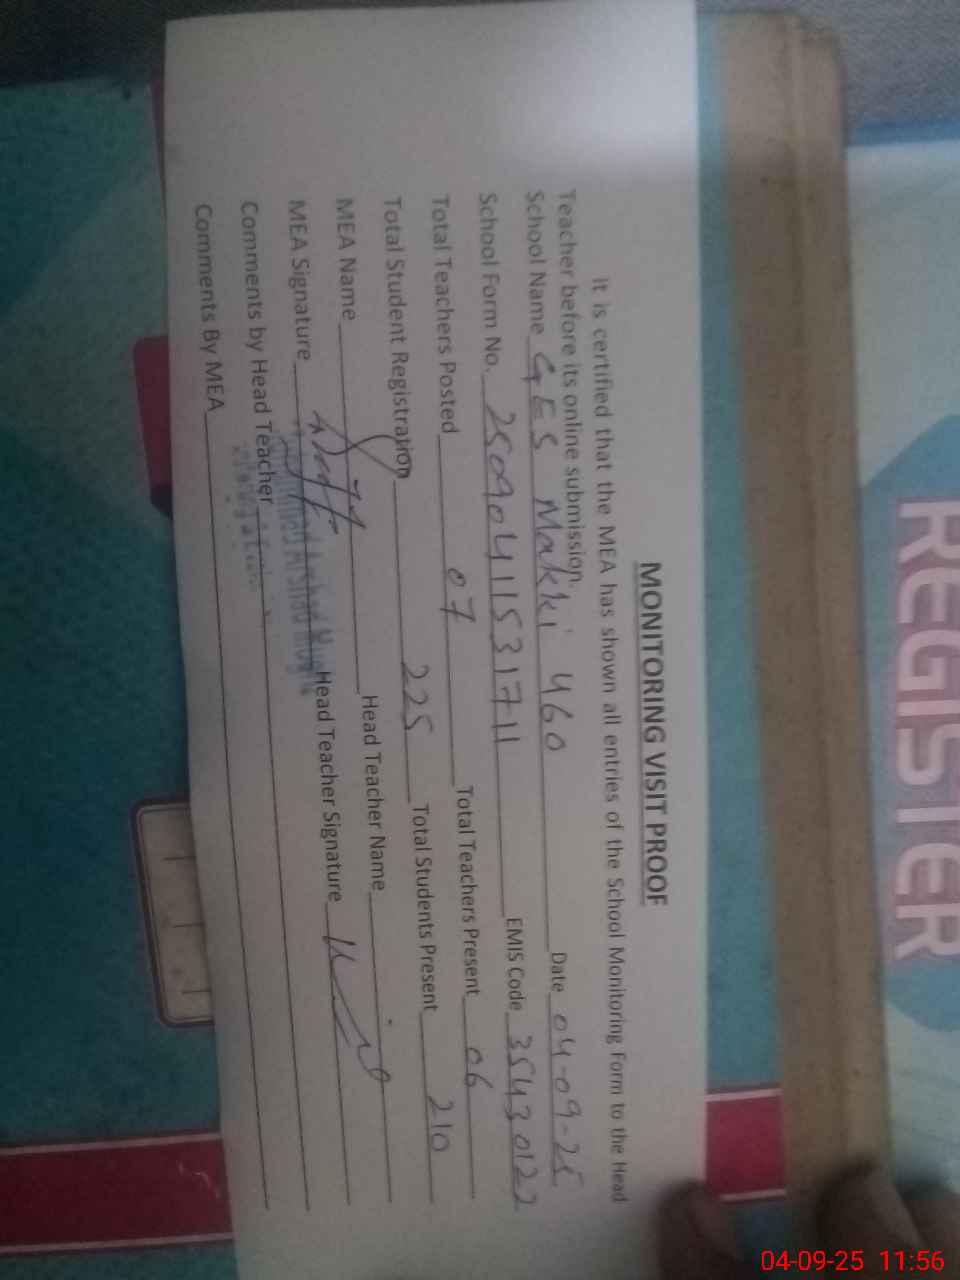 REGISTER
MONITORING VISIT PROOF
It is certified that the MEA has shown all entries of the School Monitoring Form to the Head
Teacher before its online submission.
School Name GES Makki 460 Date 04-09-25
School Form No. 25090411531711 EMIS Code 35430122
Total Teachers Posted 07 Total Teachers Present 06
Total Student Registration 225 Total Students Present 210
MEA Name Head Teacher Name
MEA Signature Head Teacher Signature
Comments by Head Teacher
Comments By MEA
04-09-25 11:56